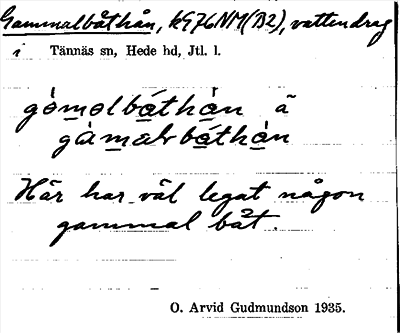 Gammalbåthån, kG76NM(B2), vattendrag
i Tännäs sn, Hede hd, Jtl. l.
gòmolbáthån ä
gàmalbáthån
Här har väl legat någon
gammal båt.
O. Arvid Gudmundson 1935.